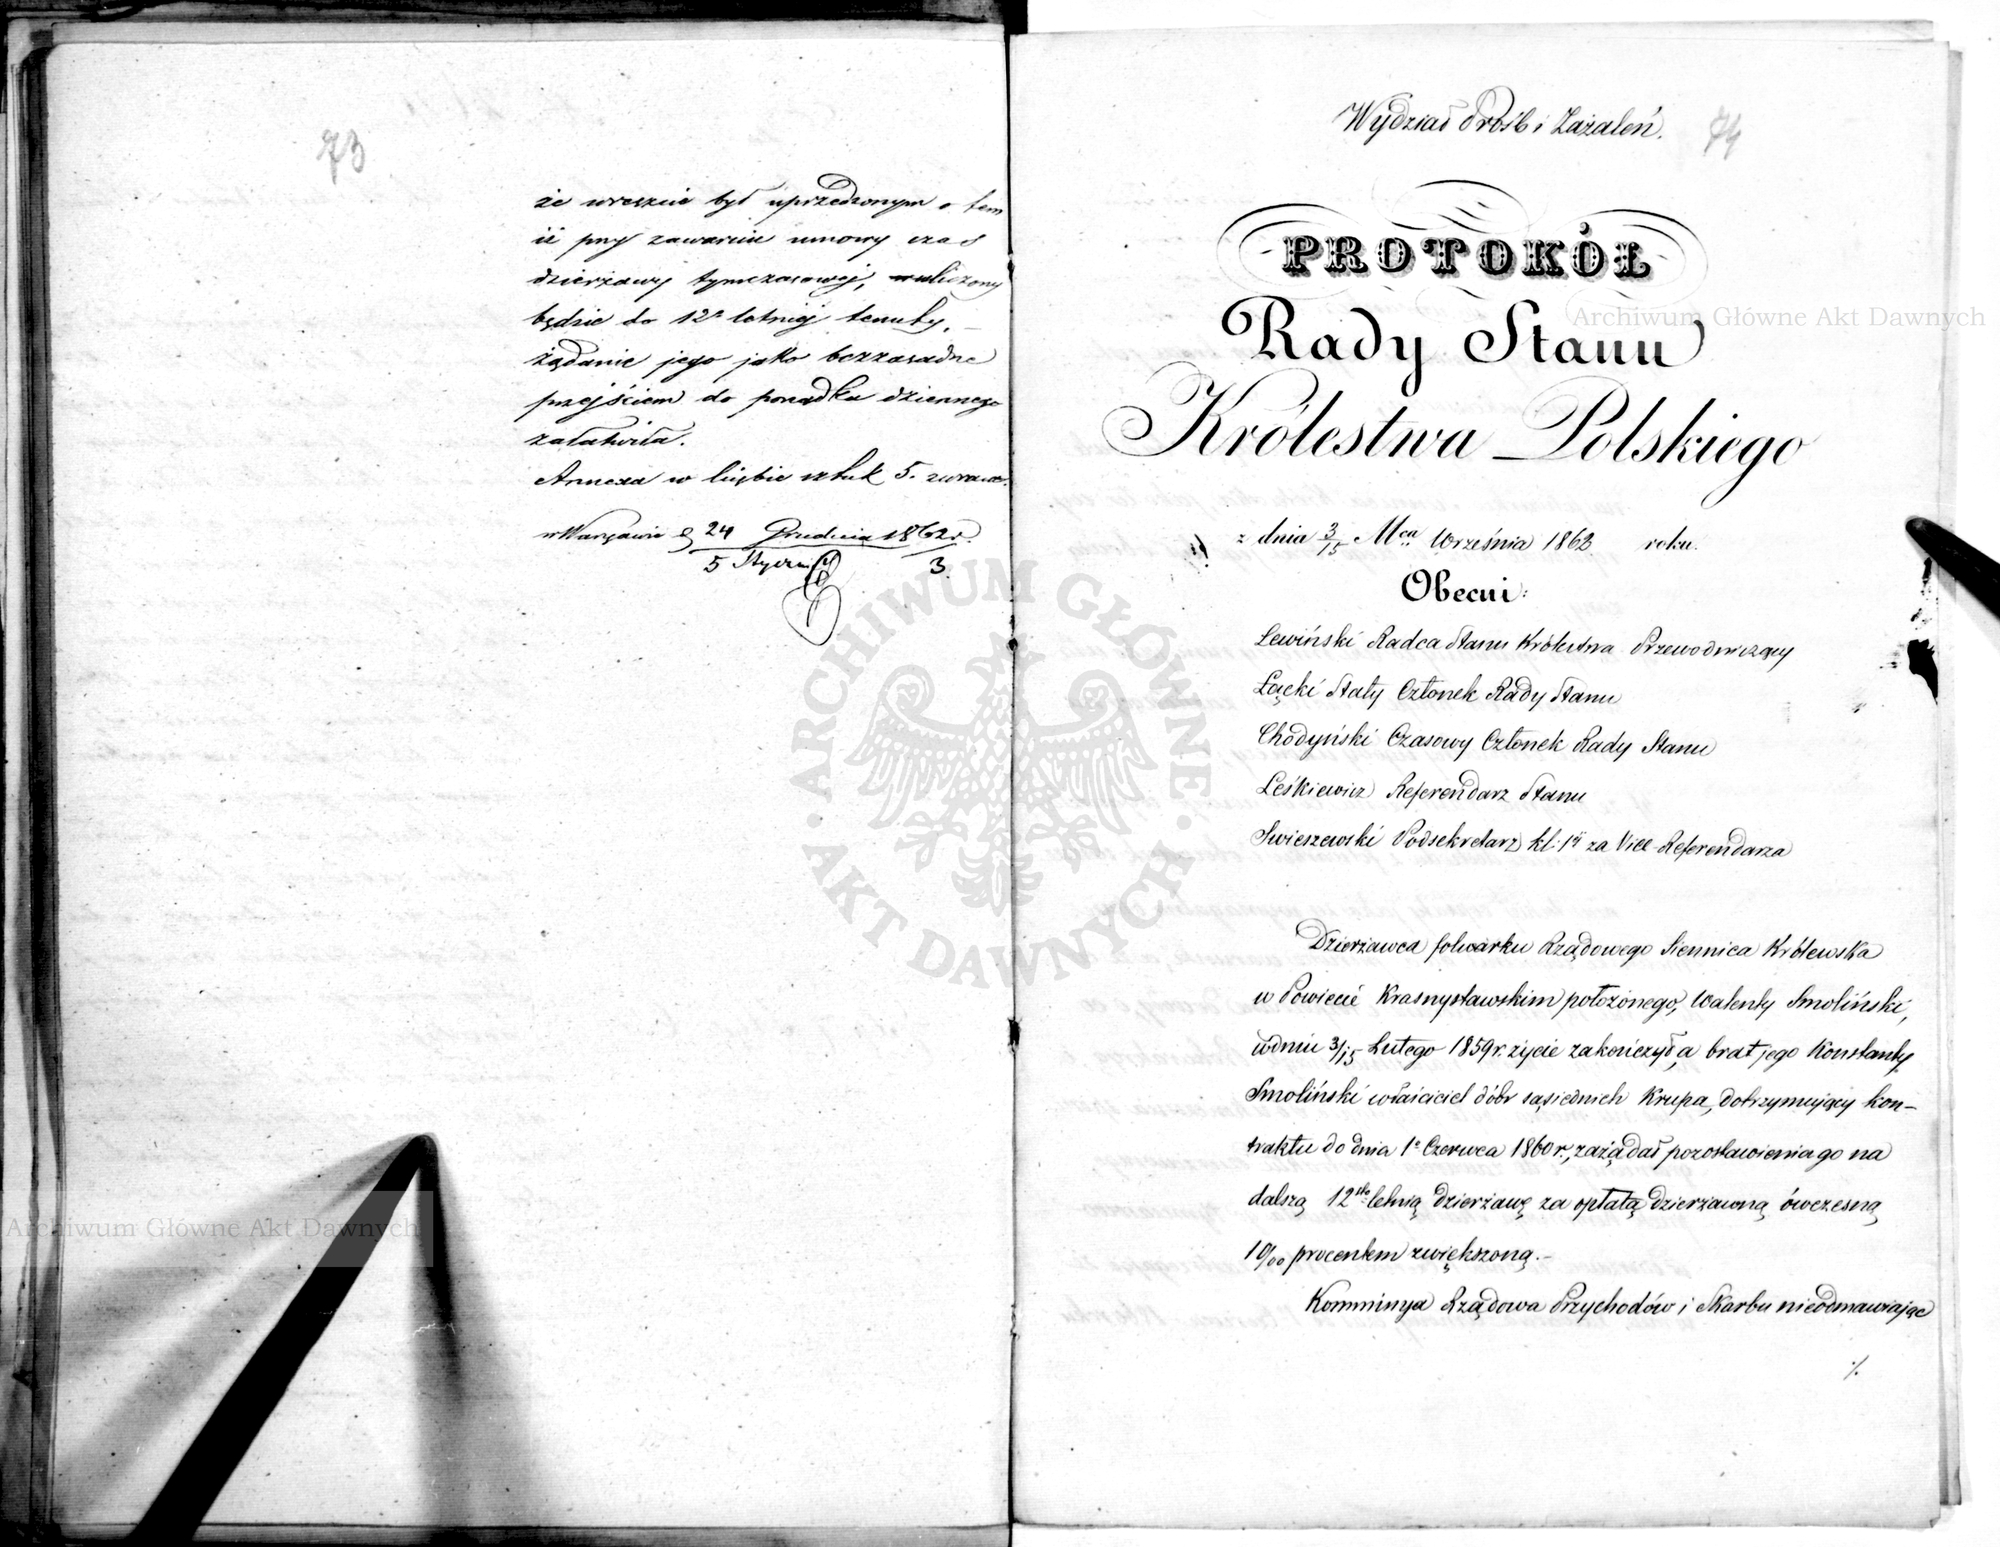 73
że wreszcie był uprzedzonym o tem
iż przy zawarciu umowy czas
dzierżawy tymczasowej, wliczony
będzie do 12o letniej tenuty, —
żądanie jego jako bezzasadne
przejściem do porządku dziennego
załatwiła.
Annexa w liczbie sztuk 5. zwraca.
w Warszawie d 24 Grudnia 1862 r.
5 Stycznia 3.
Wydział Próśb i Zażaleń.
74
PROTOKÓŁ
Rady Stanu
Królestwa Polskiego
z dnia 3/15 Mca Września 1862 roku.
Obecni:
Lewiński Radca Stanu Królestwa Przewodniczący
Łącki Stały Członek Rady Stanu
Chodyński Czasowy Członek Rady Stanu
Leśkiewicz Referendarz Stanu
Swieszewski Podsekretarz kl: 1ej za Vice-Referendarza
Dzierżawca folwarku Rządowego Siennica Królewska
w Powiecie Krasnystawskim położonego, Walenty Smoliński,
w dniu 3/15 Lutego 1859 r. życie zakończył, a brat jego Konstanty
Smoliński właściciel dóbr sąsiednich Krupa, dotrzymujący kon-
traktu do dnia 1o Czerwca 1860 r., zażądał pozostawienia go na
dalszą 12sto letnią dzierżawę za opłatą dzierżawną ówczesną
10/00 procentem zwiększoną. —
Kommisya Rządowa Przychodów i Skarbu nieodmawiając
./.
Archiwum Główne Akt Dawnych
Archiwum Główne Akt Dawnych
ARCHIWUM GŁÓWNE · AKT DAWNYCH ·